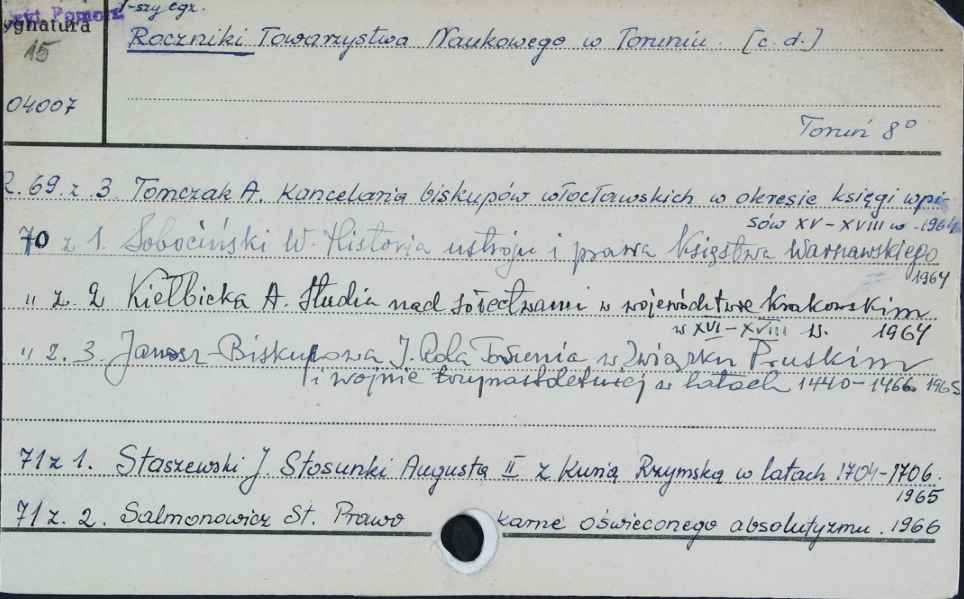 I-szy egz.
ygnatura
Roczniki Towarzystwa Naukowego w Toruniu. [c. d.]
15
04007
Toruń 8°
R. 69. z. 3. Tomczak A. Kancelaria biskupów włocławskich w okresie księgi wpi-
sów XV - XVIII w. - 1964
70 z 1. Sobociński W. Historja ustroju i prawa Księstwa Warszawskiego
1964
" z. 2 Kiełbicka A. Studia nad sołectwami w województwie Krakowskim
w XVI - XVIII w. 1964
" z. 3. Janosz-Biskupowa I. Rola Torunia w Związku Pruskim
i wojnie trzynastoletniej w latach 1440-1466 1965
71 z 1. Staszewski J. Stosunki Augusta II z Kurią Rzymską w latach 1704-1706.
1965
71 z. 2. Salmonowicz St. Prawo karne oświeconego absolutyzmu. 1966